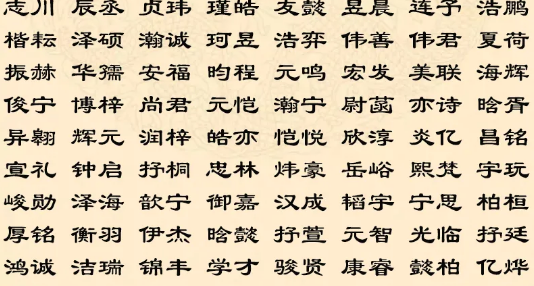 志川 辰丞 贞玮 瑾皓 友懿 昱晨 连予 浩鹏
楷耘 泽硕 瀚诚 珂昱 浩弈 伟善 伟君 夏荷
振赫 华孺 安福 昀程 元鸣 宏发 美联 海辉
俊宁 博梓 尚君 元恺 瀚宁 尉菡 亦诗 晗胥
异翱 辉元 润梓 皓亦 恺悦 欣淳 炎亿 昌铭
宣礼 钟启 抒桐 忠林 炜豪 岳峪 熙梵 宇玩
峻勋 泽海 歆宁 御嘉 汉成 韬宇 宁思 柏桓
厚铭 衡羽 伊杰 晗懿 抒萱 元智 光临 抒廷
鸿诚 洁瑞 锦丰 学才 骏贤 康睿 懿柏 亿烨